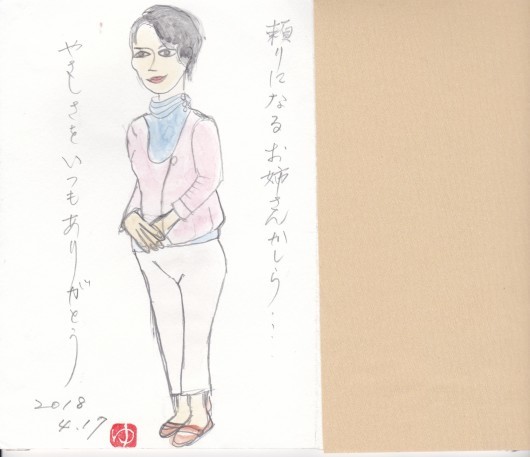 頼りになるお姉さんかしら…
やさしさをいつもありがとう
2018
4.17
ゆ